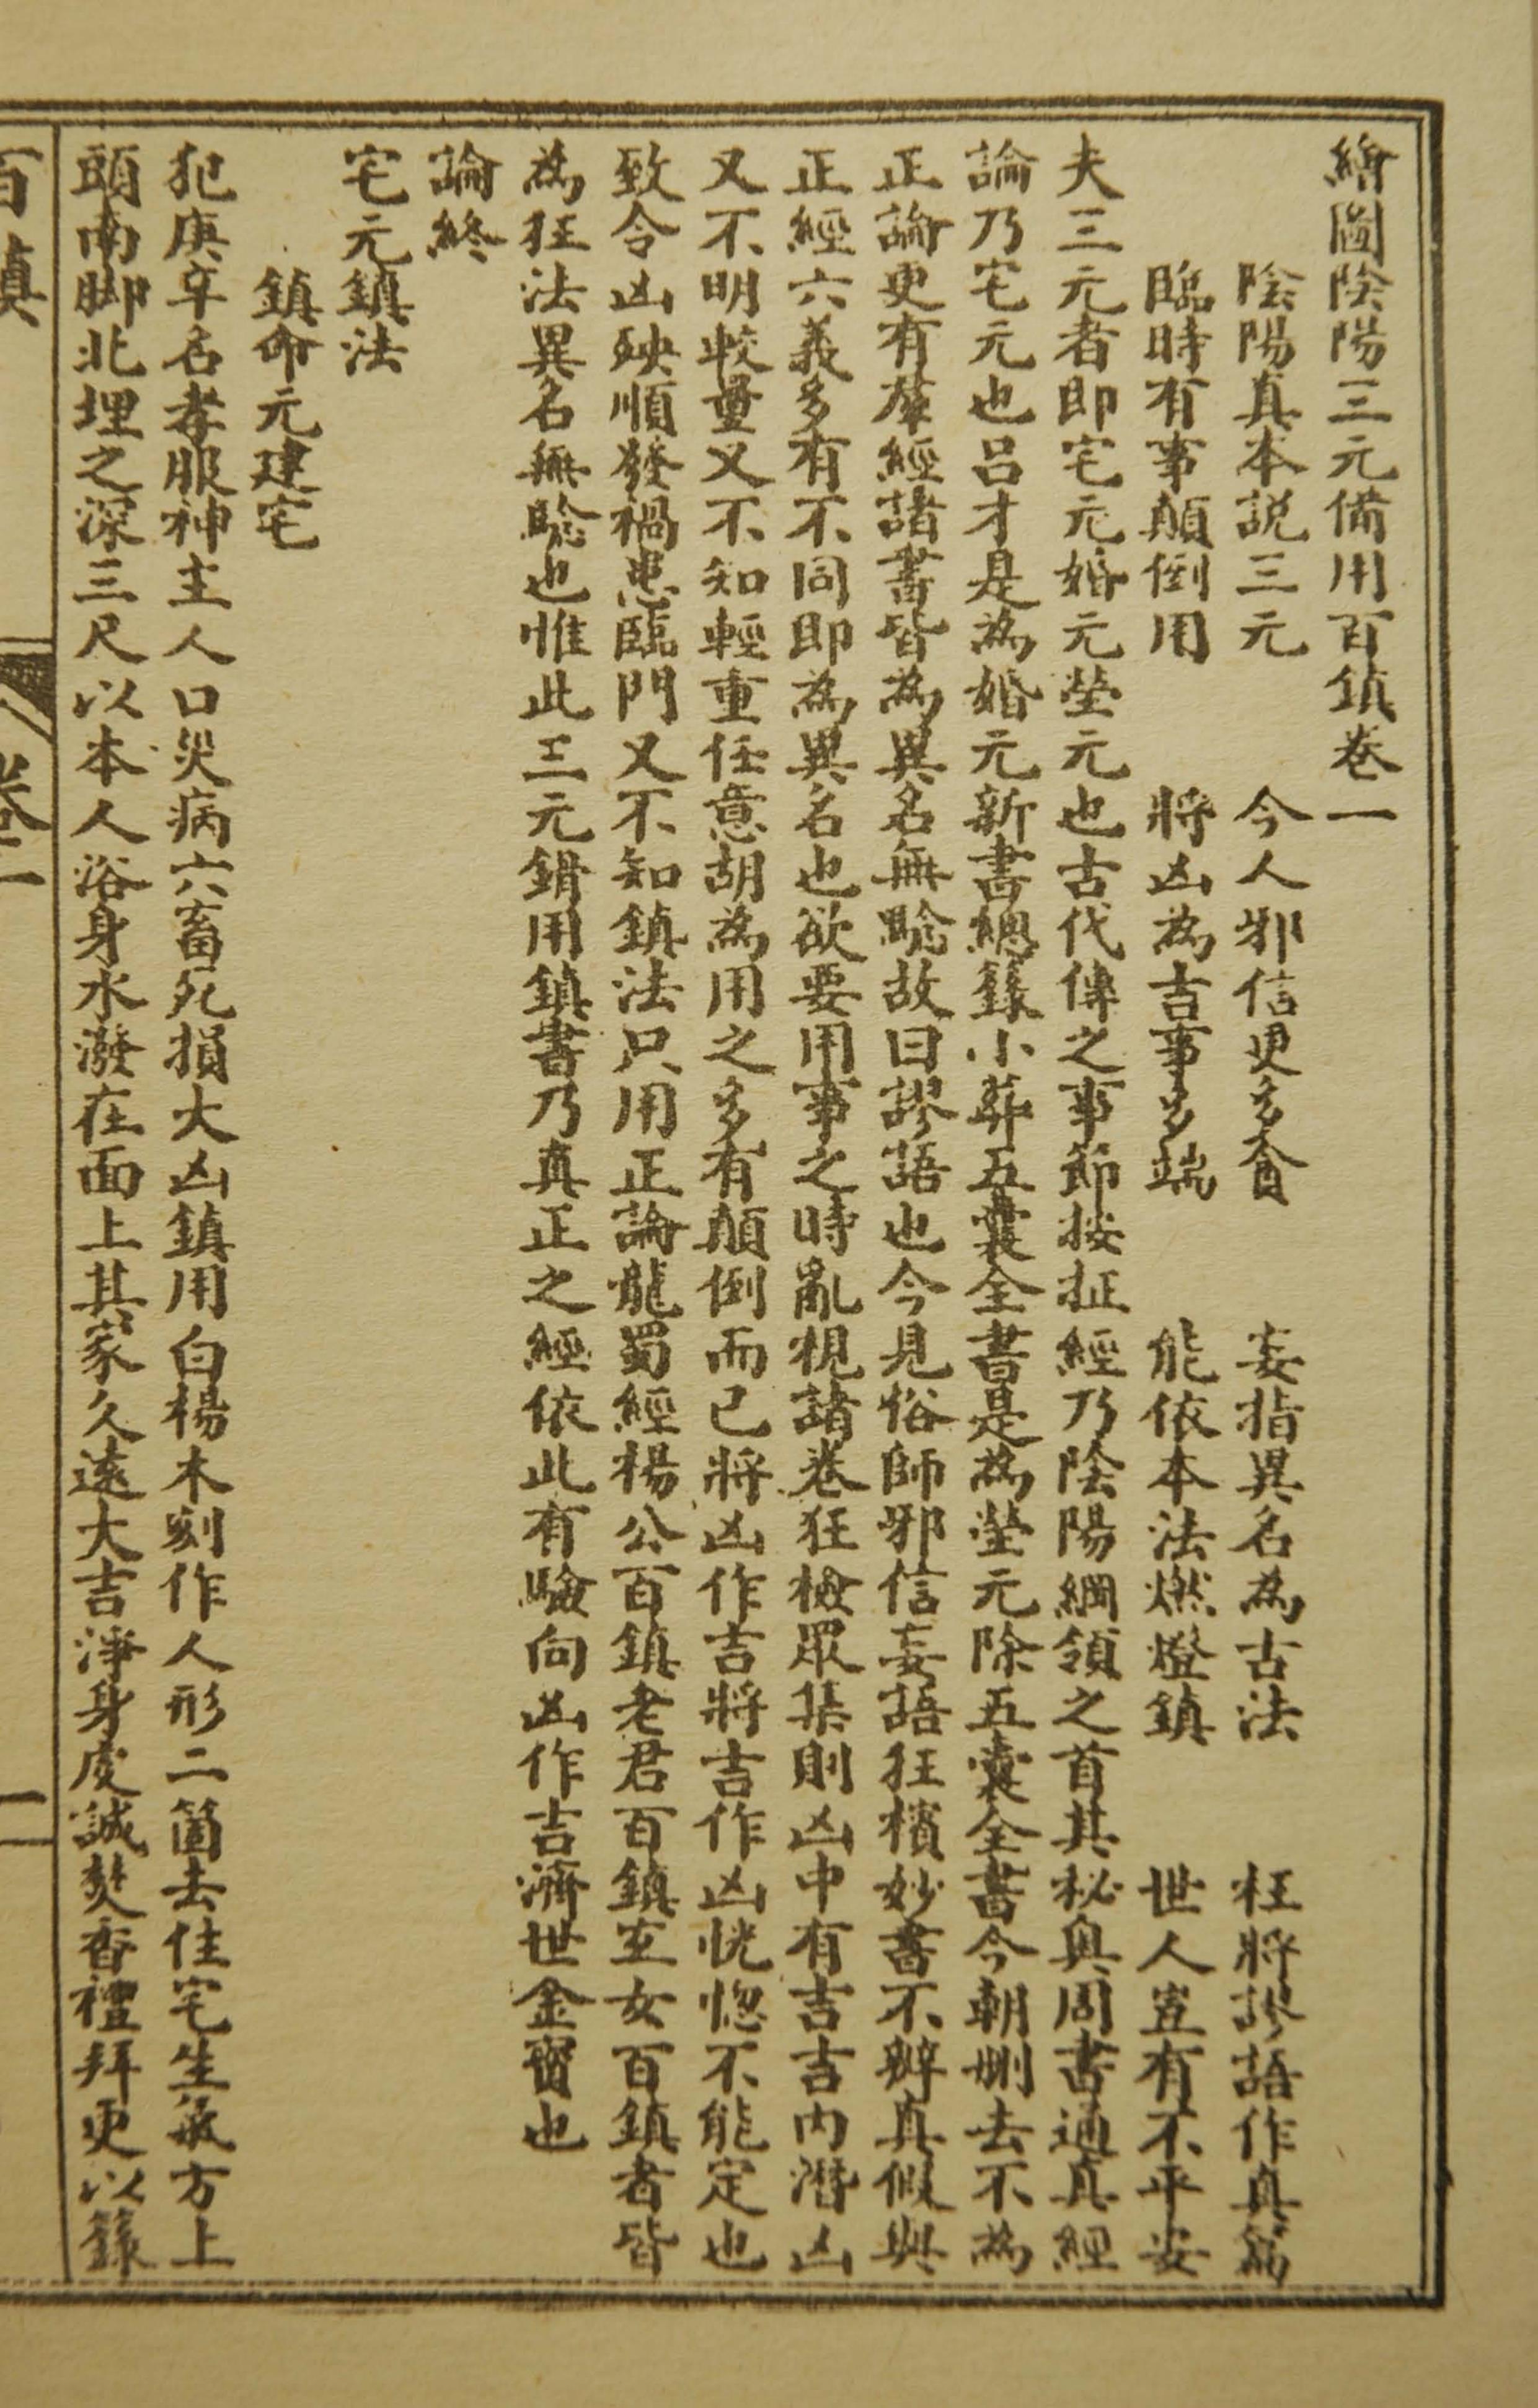 繪圖陰陽三元備用百鎮卷一
陰陽真本説三元 今人邪信更多貪 妄指異名為古法 枉將謬語作真篇
臨時有事顛倒用 將凶為吉事多端 能依本法燃燈鎮 世人豈有不平安
夫三元者即宅元婚元塋元也古代傳之事節按征經乃陰陽綱領之首其秘奥周書通真經
論乃宅元也吕才是為婚元新書總錄小葬五囊全書是為塋元除五囊全書今朝刪去不為
正論更有羣經諸書皆為異名無騐故曰謬語也今見俗師邪信妄語狂檳妙書不辨真假與
正經六義多有不同即為異名也欲要用事之時亂視諸卷狂檢眾集則凶中有吉吉内潛凶
又不明較量又不知輕重任意胡為用之多有顛倒而已將凶作吉將吉作凶恍惚不能定也
致令凶殃順發禍患臨門又不知鎮法只用正論龍蜀經楊公百鎮老君百鎮玄女百鎮者皆
為狂法異名無騐也惟此三元錯用鎮書乃真正之經依此有驗向凶作吉濟世金寶也
論終
宅元鎮法
鎮命元建宅
犯庚辛名孝服神主人口災病六畜死損大凶鎮用白楊木刻作人形二箇去住宅生氣方上
頭南脚北埋之深三尺以本人浴身水潑在面上其家久遠大吉淨身虔誠焚香禮拜更以籙
百鎮 卷一 一